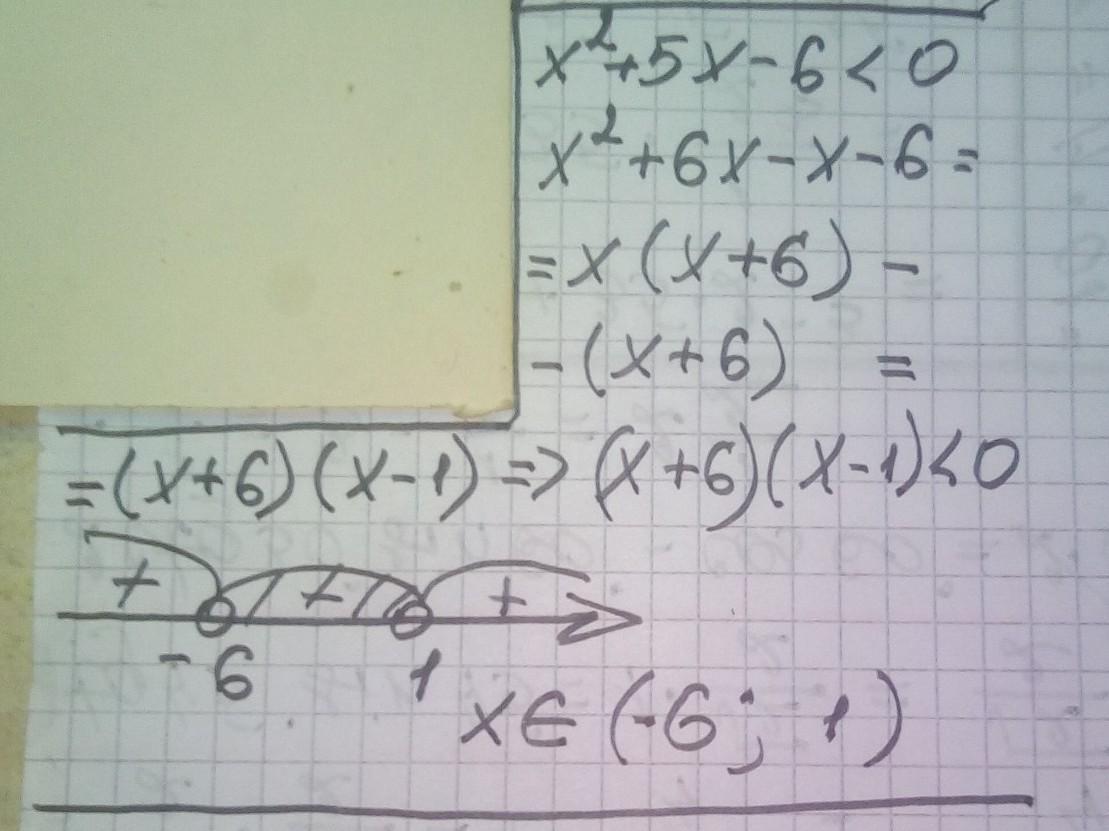 x²+5x-6<0
x²+6x-x-6=
=x(x+6)-
-(x+6) =
=(x+6)(x-1)=>(x+6)(x-1)<0
+ + +
-6 1
x∈(-6; 1)